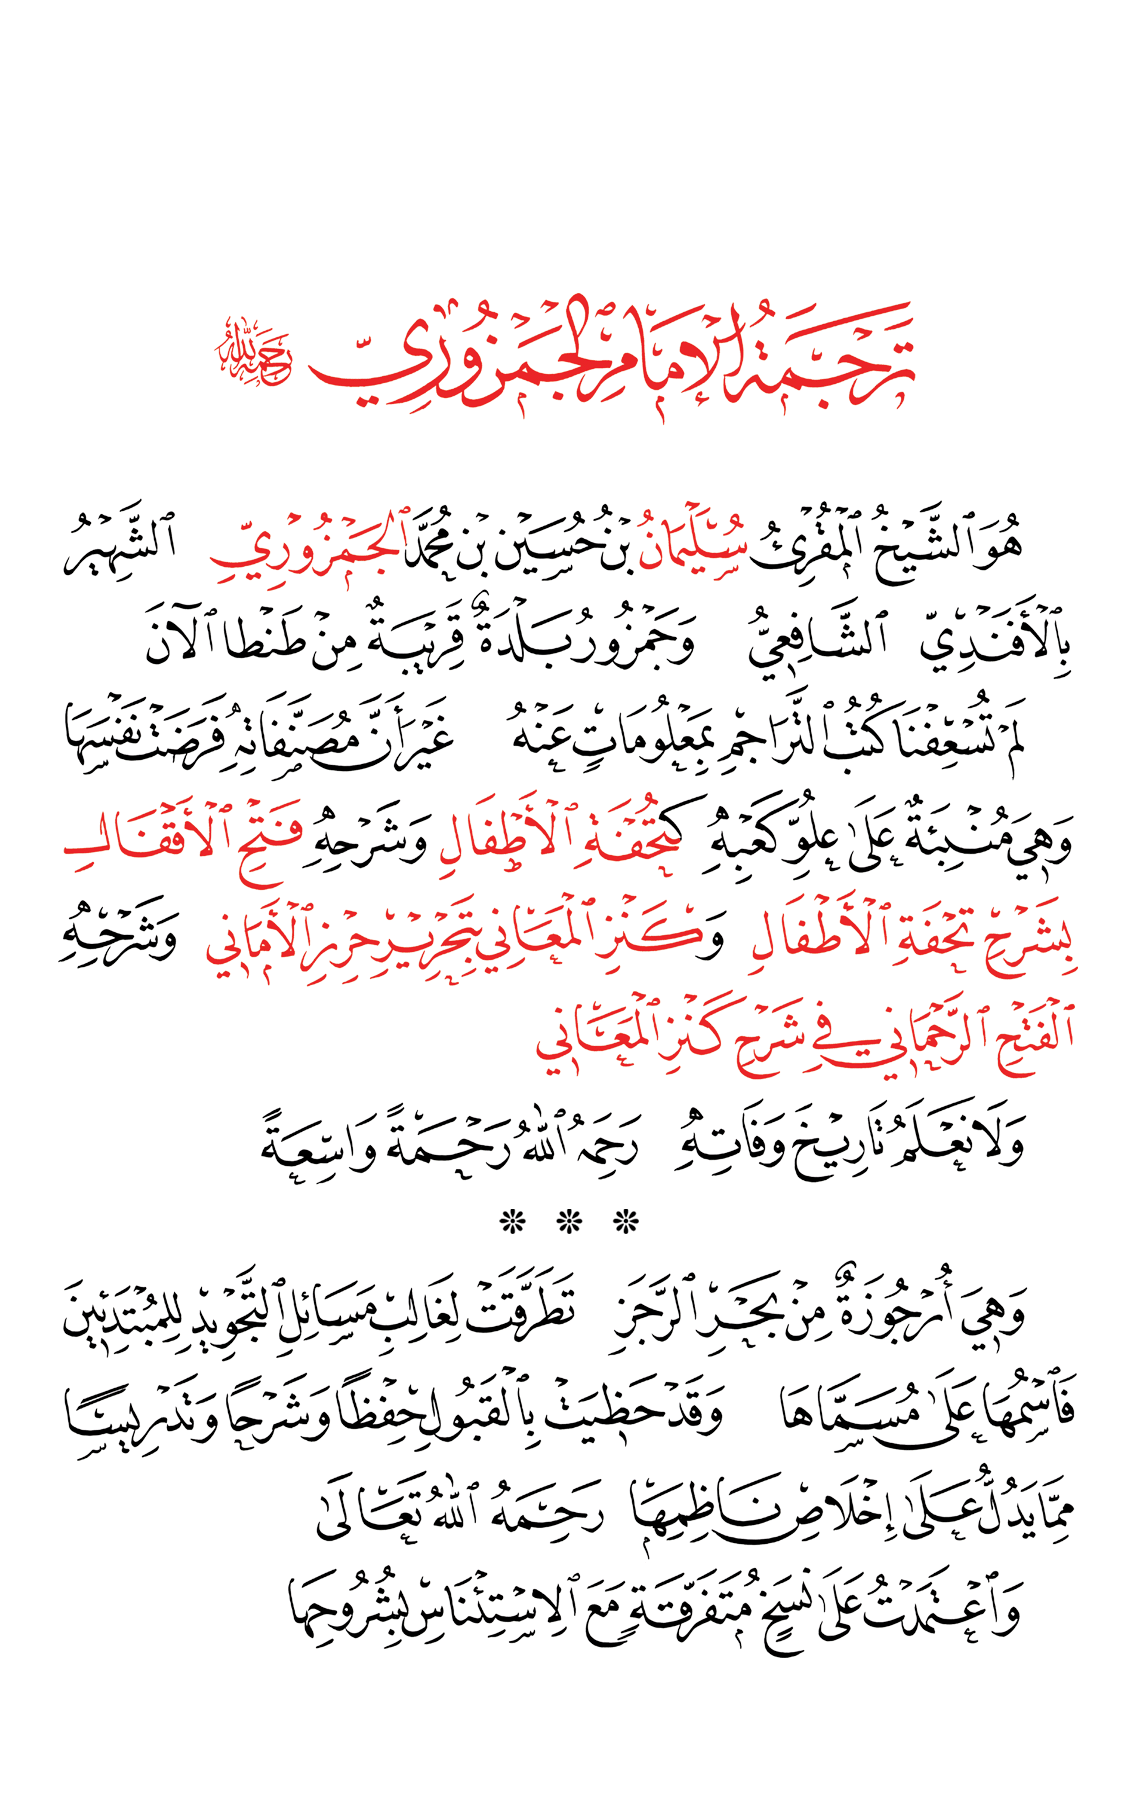 تَرْجَمَةُ الْإِمَامِ الْجَمْزُورِيِّ رَحِمَهُ اللَّهُ
هُوَ ٱلشَّيْخُ ٱلْمُقْرِئُ سُلَيْمَانُ بْنُ حُسَيْنِ بْنِ مُحَمَّدٍ ٱلْجَمْزُورِيِّ ٱلشَّهِيرُ
بِٱلْأَفَنْدِيِّ ٱلشَّافِعِيُّ وَجَمْزُورُ بَلْدَةٌ قَرِيْبَةٌ مِنْ طَنْطا ٱلْآنَ
لَمْ تُسْعِفْنَا كُتُبُ ٱلتَّرَاجِمِ بِمَعْلُومَاتٍ عَنْهُ غَيْرَ أَنَّ مُصَنَّفَاتِهِ فَرَضَتْ نَفْسَهَا
وَهِيَ مُنْبِئَةٌ عَلَى عُلُوِّ كَعْبِهِ كَتُحْفَةِ ٱلْأَطْفَالِ وَشَرْحِهِ فَتْحِ ٱلْأَقْفَالِ
بِشَرْحِ تُحْفَةِ ٱلْأَطْفَالِ وَكَنْزِ ٱلْمَعَانِي بِتَحْرِيْرِ حِرْزِ ٱلْأَمَانِي وَشَرْحِهِ
ٱلْفَتْحِ ٱلرَّحْمَانِي فِي شَرْحِ كَنْزِ ٱلْمَعَانِي
وَلَا نَعْلَمُ تَارِيْخَ وَفَاتِهِ رَحِمَهُ ٱللَّهُ رَحْمَةً وَاسِعَةً
❊ ❊ ❊
وَهِيَ أُرْجُوزَةٌ مِنْ بَحْرِ ٱلرَّجَزِ تَطَرَّقَتْ لِغَالِبِ مَسَائِلِ ٱلتَّجْوِيدِ لِلْمُبْتَدِئِينَ
فَٱسْمُهَا عَلَى مُسَمَّاهَا وَقَدْ حَظِيَتْ بِٱلْقَبُولِ حِفْظًا وَشَرْحًا وَتَدْرِيسًا
مِمَّا يَدُلُّ عَلَى إِخْلَاصِ نَاظِمِهَا رَحِمَهُ ٱللَّهُ تَعَالَى
وَٱعْتَمَدْتُ عَلَى نُسَخٍ مُتَفَرِّقَةٍ مَعَ ٱلِاسْتِئْنَاسِ بِشُرُوحِهَا